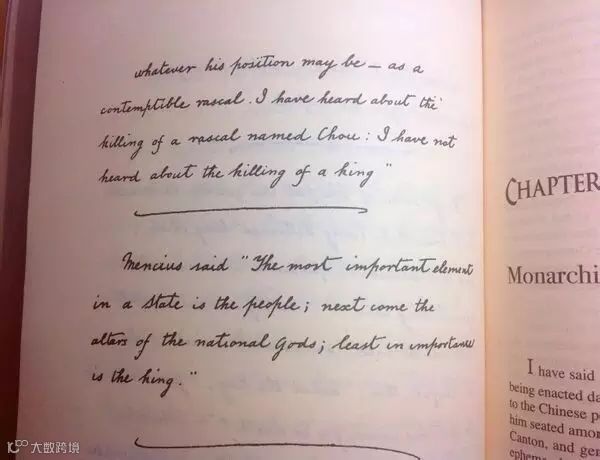 whatever his position may be — as a
contemptible rascal. I have heard about the
killing of a rascal named Chou: I have not
heard about the killing of a king"
Mencius said "The most important element
in a state is the people; next come the
altars of the national Gods; least in importance
is the king."
CHAPTER
Monarchi
I have said
being enacted da
to the Chinese p
him seated amon
Canton, and gen
ephem
大数跨境